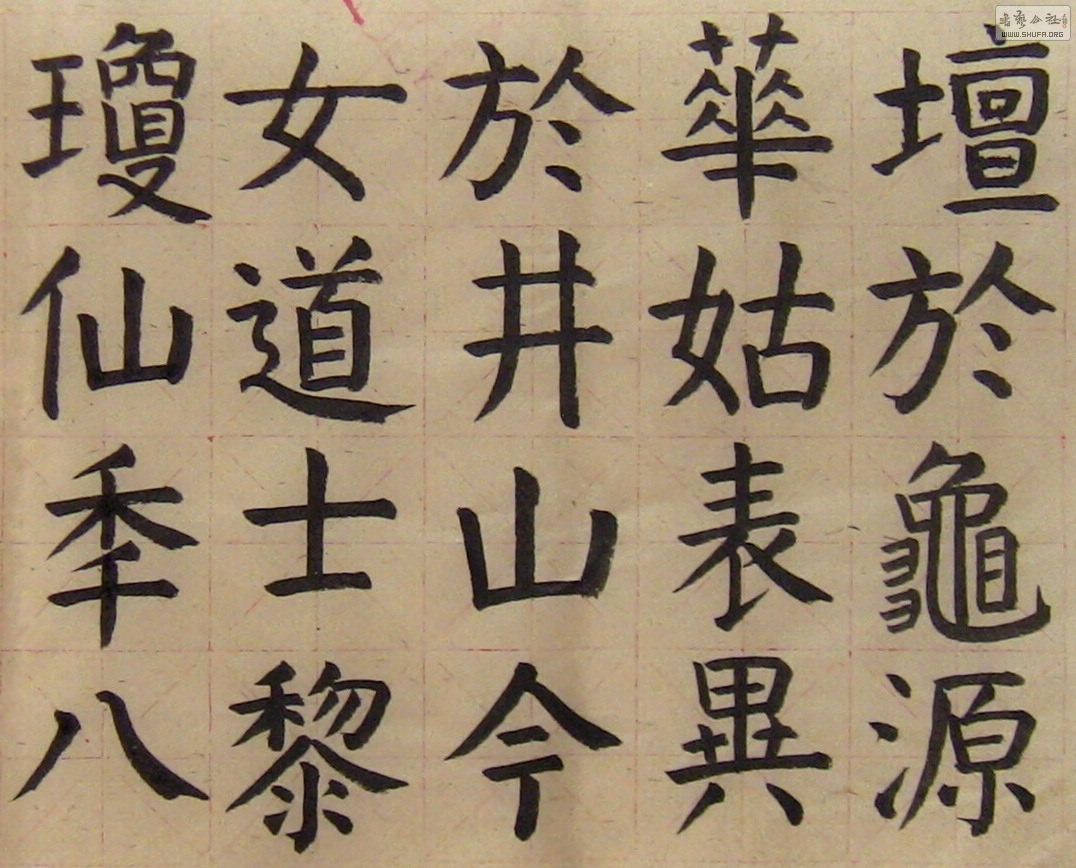 壇於龜源
華姑表異
於井山今
女道士黎
瓊仙秊八
WWW.SHUFA.ORG